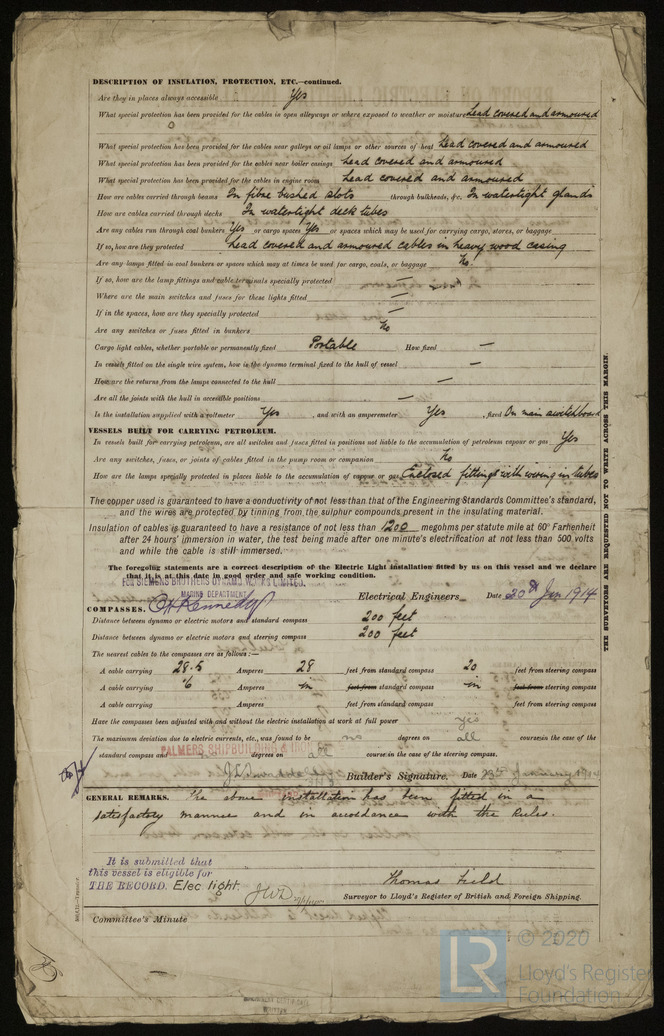 DESCRIPTION OF INSULATION, PROTECTION, ETC.—continued.
Are they in places always accessible Yes
What special protection has been provided for the cables in open alleyways or where exposed to weather or moisture Lead covered and armoured
What special protection has been provided for the cables near galleys or oil lamps or other sources of heat Lead covered and armoured
What special protection has been provided for the cables near boiler casings Lead covered and armoured
What special protection has been provided for the cables in engine room Lead covered and armoured
How are cables carried through beams In fibre bushed slots through bulkheads, &c. In watertight glands
How are cables carried through decks In watertight deck tubes
Are any cables run through coal bunkers Yes or cargo spaces Yes or spaces which may be used for carrying cargo, stores, or baggage
If so, how are they protected Lead covered and armoured cables in heavy wood casing
Are any lamps fitted in coal bunkers or spaces which may at times be used for cargo, coals, or baggage No.
If so, how are the lamp fittings and cable terminals specially protected —
Where are the main switches and fuses for these lights fitted —
If in the spaces, how are they specially protected —
Are any switches or fuses fitted in bunkers No
Cargo light cables, whether portable or permanently fixed Portable How fixed —
In vessels fitted on the single wire system, how is the dynamo terminal fixed to the hull of vessel —
How are the returns from the lamps connected to the hull —
Are all the joints with the hull in accessible positions —
Is the installation supplied with a voltmeter Yes , and with an amperemeter Yes , fixed On main switchboard
VESSELS BUILT FOR CARRYING PETROLEUM.
In vessels built for carrying petroleum, are all switches and fuses fitted in positions not liable to the accumulation of petroleum vapour or gas Yes
Are any switches, fuses, or joints of cables fitted in the pump room or companion No
How are the lamps specially protected in places liable to the accumulation of vapour or gas Enclosed fittings with wiring in tubes
The copper used is guaranteed to have a conductivity of not less than that of the Engineering Standards Committee's standard,
and the wires are protected by tinning from the sulphur compounds present in the insulating material.
Insulation of cables is guaranteed to have a resistance of not less than 1200 megohms per statute mile at 60° Farhenheit
after 24 hours' immersion in water, the test being made after one minute's electrification at not less than 500 volts
and while the cable is still immersed.
The foregoing statements are a correct description of the Electric Light installation fitted by us on this vessel and we declare
that it is at this date in good order and safe working condition.
FOR SIEMENS BROTHERS DYNAMO WORKS LIMITED.
MARINE DEPARTMENT
Kennedy Electrical Engineers Date 20th Jan 1914
COMPASSES.
Distance between dynamo or electric motors and standard compass 200 feet
Distance between dynamo or electric motors and steering compass 200 feet
The nearest cables to the compasses are as follows:—
A cable carrying 28.5 Amperes 28 feet from standard compass 20 feet from steering compass
A cable carrying .6 Amperes in feet from standard compass in feet from steering compass
A cable carrying Amperes feet from standard compass feet from steering compass
Have the compasses been adjusted with and without the electric installation at work at full power yes
The maximum deviation due to electric currents, etc., was found to be no degrees on all course in the case of the
standard compass and degrees on all course in the case of the steering compass.
PALMERS SHIPBUILDING & IRON
Builder's Signature. Date 23rd January 1914
GENERAL REMARKS. The above installation has been fitted in a
satisfactory manner and in accordance with the Rules.
It is submitted that
this vessel is eligible for
THE RECORD. Elec light.
Thomas Field
Surveyor to Lloyd's Register of British and Foreign Shipping.
Committee's Minute
THE SURVEYORS ARE REQUESTED NOT TO WRITE ACROSS THIS MARGIN.
LR
© 2020
Lloyd's Register
Foundation